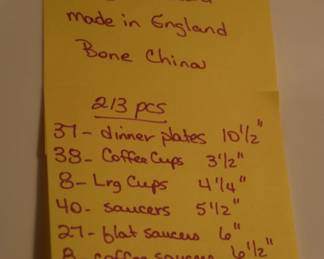 made in England
Bone China
213 pcs
37- dinner plates 10 1/2"
38- Coffee Cups 3 1/2"
8- Lrg Cups 4 1/4"
40- saucers 5 1/2"
27- flat saucers 6"
8 coffee saucers 6 1/2"